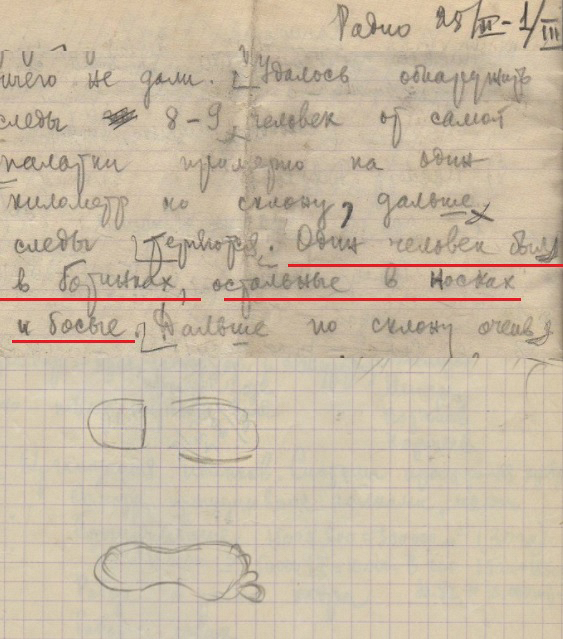 Радио 28/II - 1/III
ичего не дали. Удалось обнаружить
следы 8-9 человек от самой
палатки примерно на один
километр по склону, дальше
следы теряются. Один человек был
в ботинках, остальные в носках
и босые. Дальше по склону очень